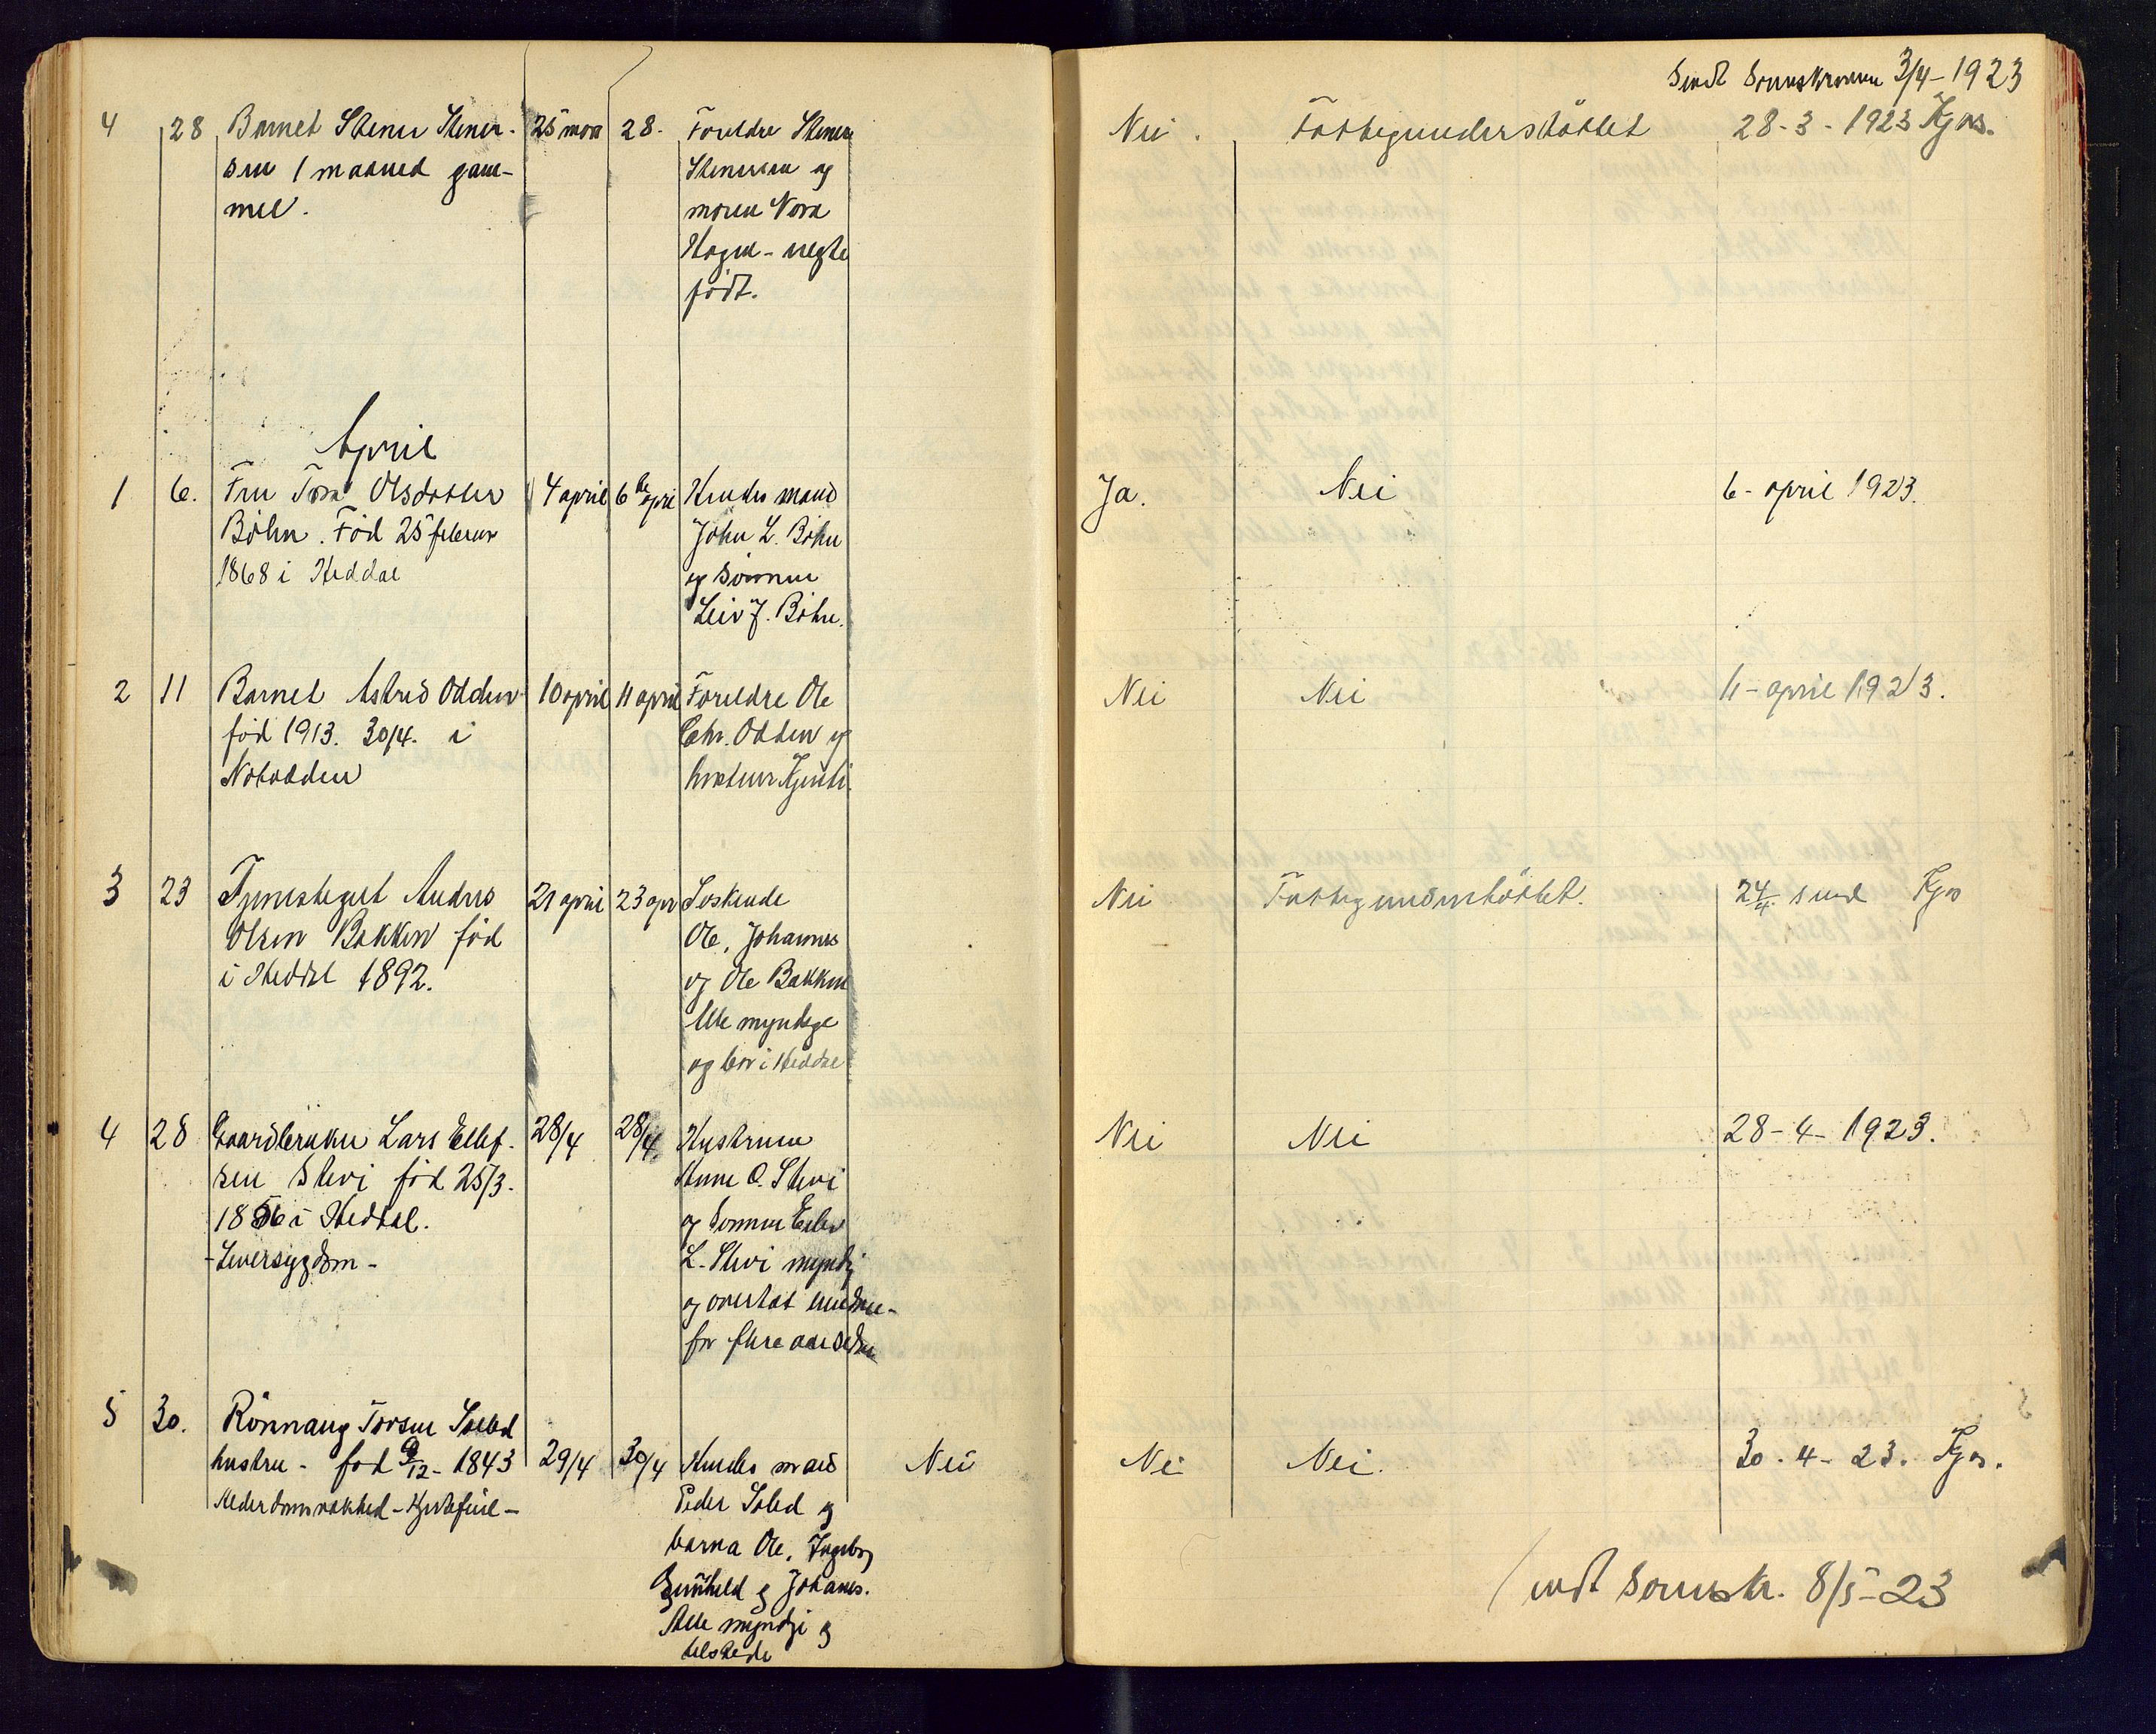 Sendt Sorenskriveren 3/4-1923
4 28 Barnet Stener Stener- 25 mars 28. Foreldre Stener Nei. Fattigunderstöttet 28-3-1923 Kjos.
sen 1 maaned gam- Stenersen og
mel. moren Nora
Hagen - uegte
födt.
April
1 6. Fru Tora Olsdatter 4 april 6te april Hendes mand Ja. Nei 6- april 1923.
Böhn. Föd 25 februar John L. Böhn
1868 i Heddal og sönnen
Leiv J. Böhn.
2 11 Barnet Astrid Odden 10 april 11 april Foreldre Ole Nei Nei 11- april 1923.
föd 1913. 30/4. i Chr. Odden og
Notodden hustru Kjersti
3 23 Tjenestegut Andres 21 april 23 apr Söskende Nei Fattigunderstöttet. 24/4 send Kjos
Olsen Bakken föd Ole, Johannes
i Heddal 1892. og Ole Bakken
Alle myndige
og bor i Heddal
4 28 Gaardbruker Lars Ellef- 28/4 28/4 Hustruen Nei Nei 28-4-1923.
sen Stevi föd 25/3. Anne O. Stevi
1856 i Heddal. og sønnen Eilev
-Leversygdom- L. Stevi myndig
og overtat eiendom-
for flere aar siden
5 30. Rönnaug Torsen Soled
hustru - föd 9/12-1843 29/4 30/4 Hendes mand Nei Nei Nei. 30.4-23. Kjos.
Alderdomsvakhed - Hjertefeil - Peder Soled og
barna Ole, Ingeborg
Gunhild og Johanes.
Alle myndige og
tilstede
Sendt Sorenskr. 8/5-23